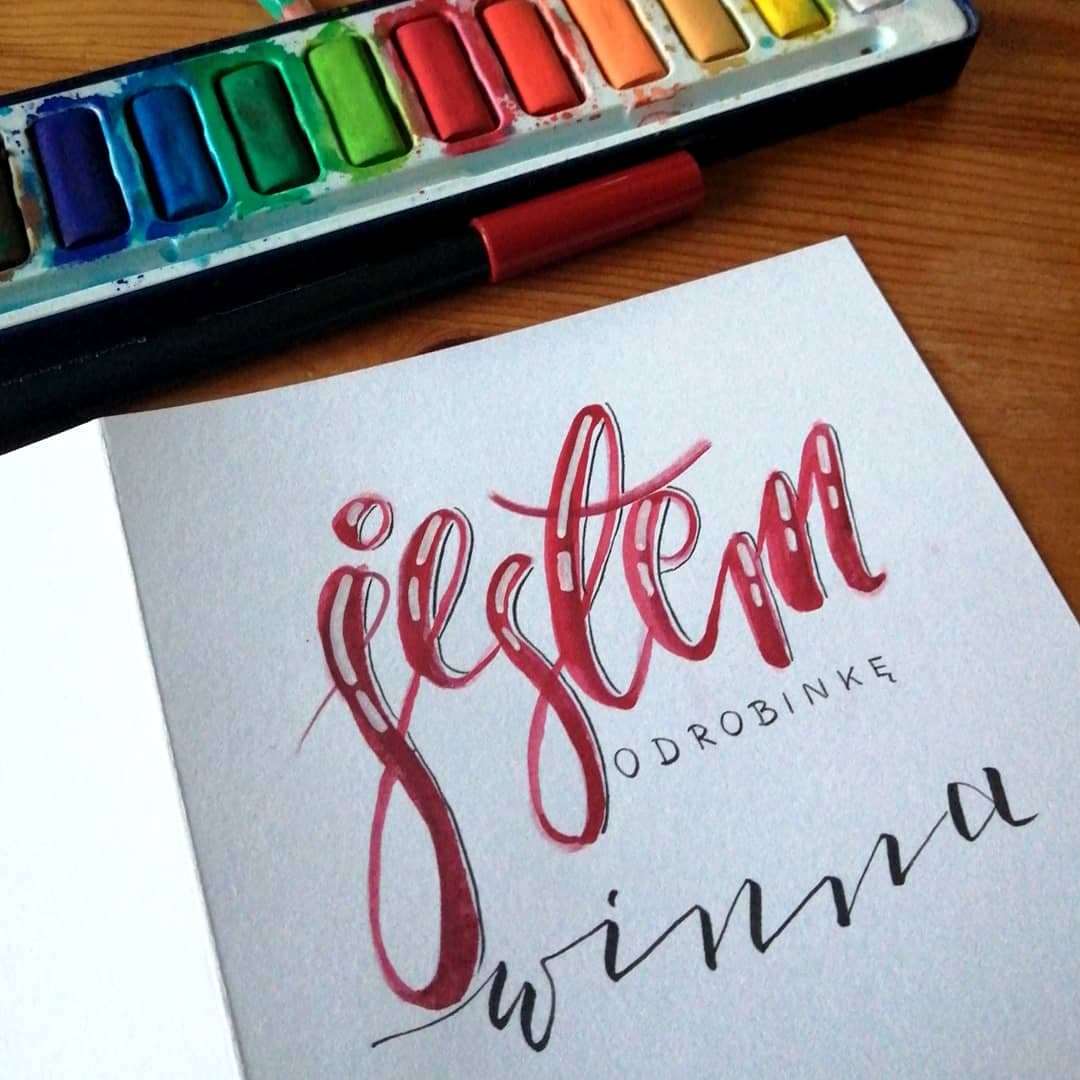 jestem
ODROBINKĘ
winna